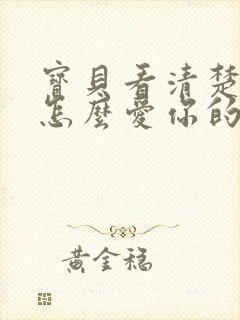 寶貝看清楚
怎麼愛你的
黃金稳